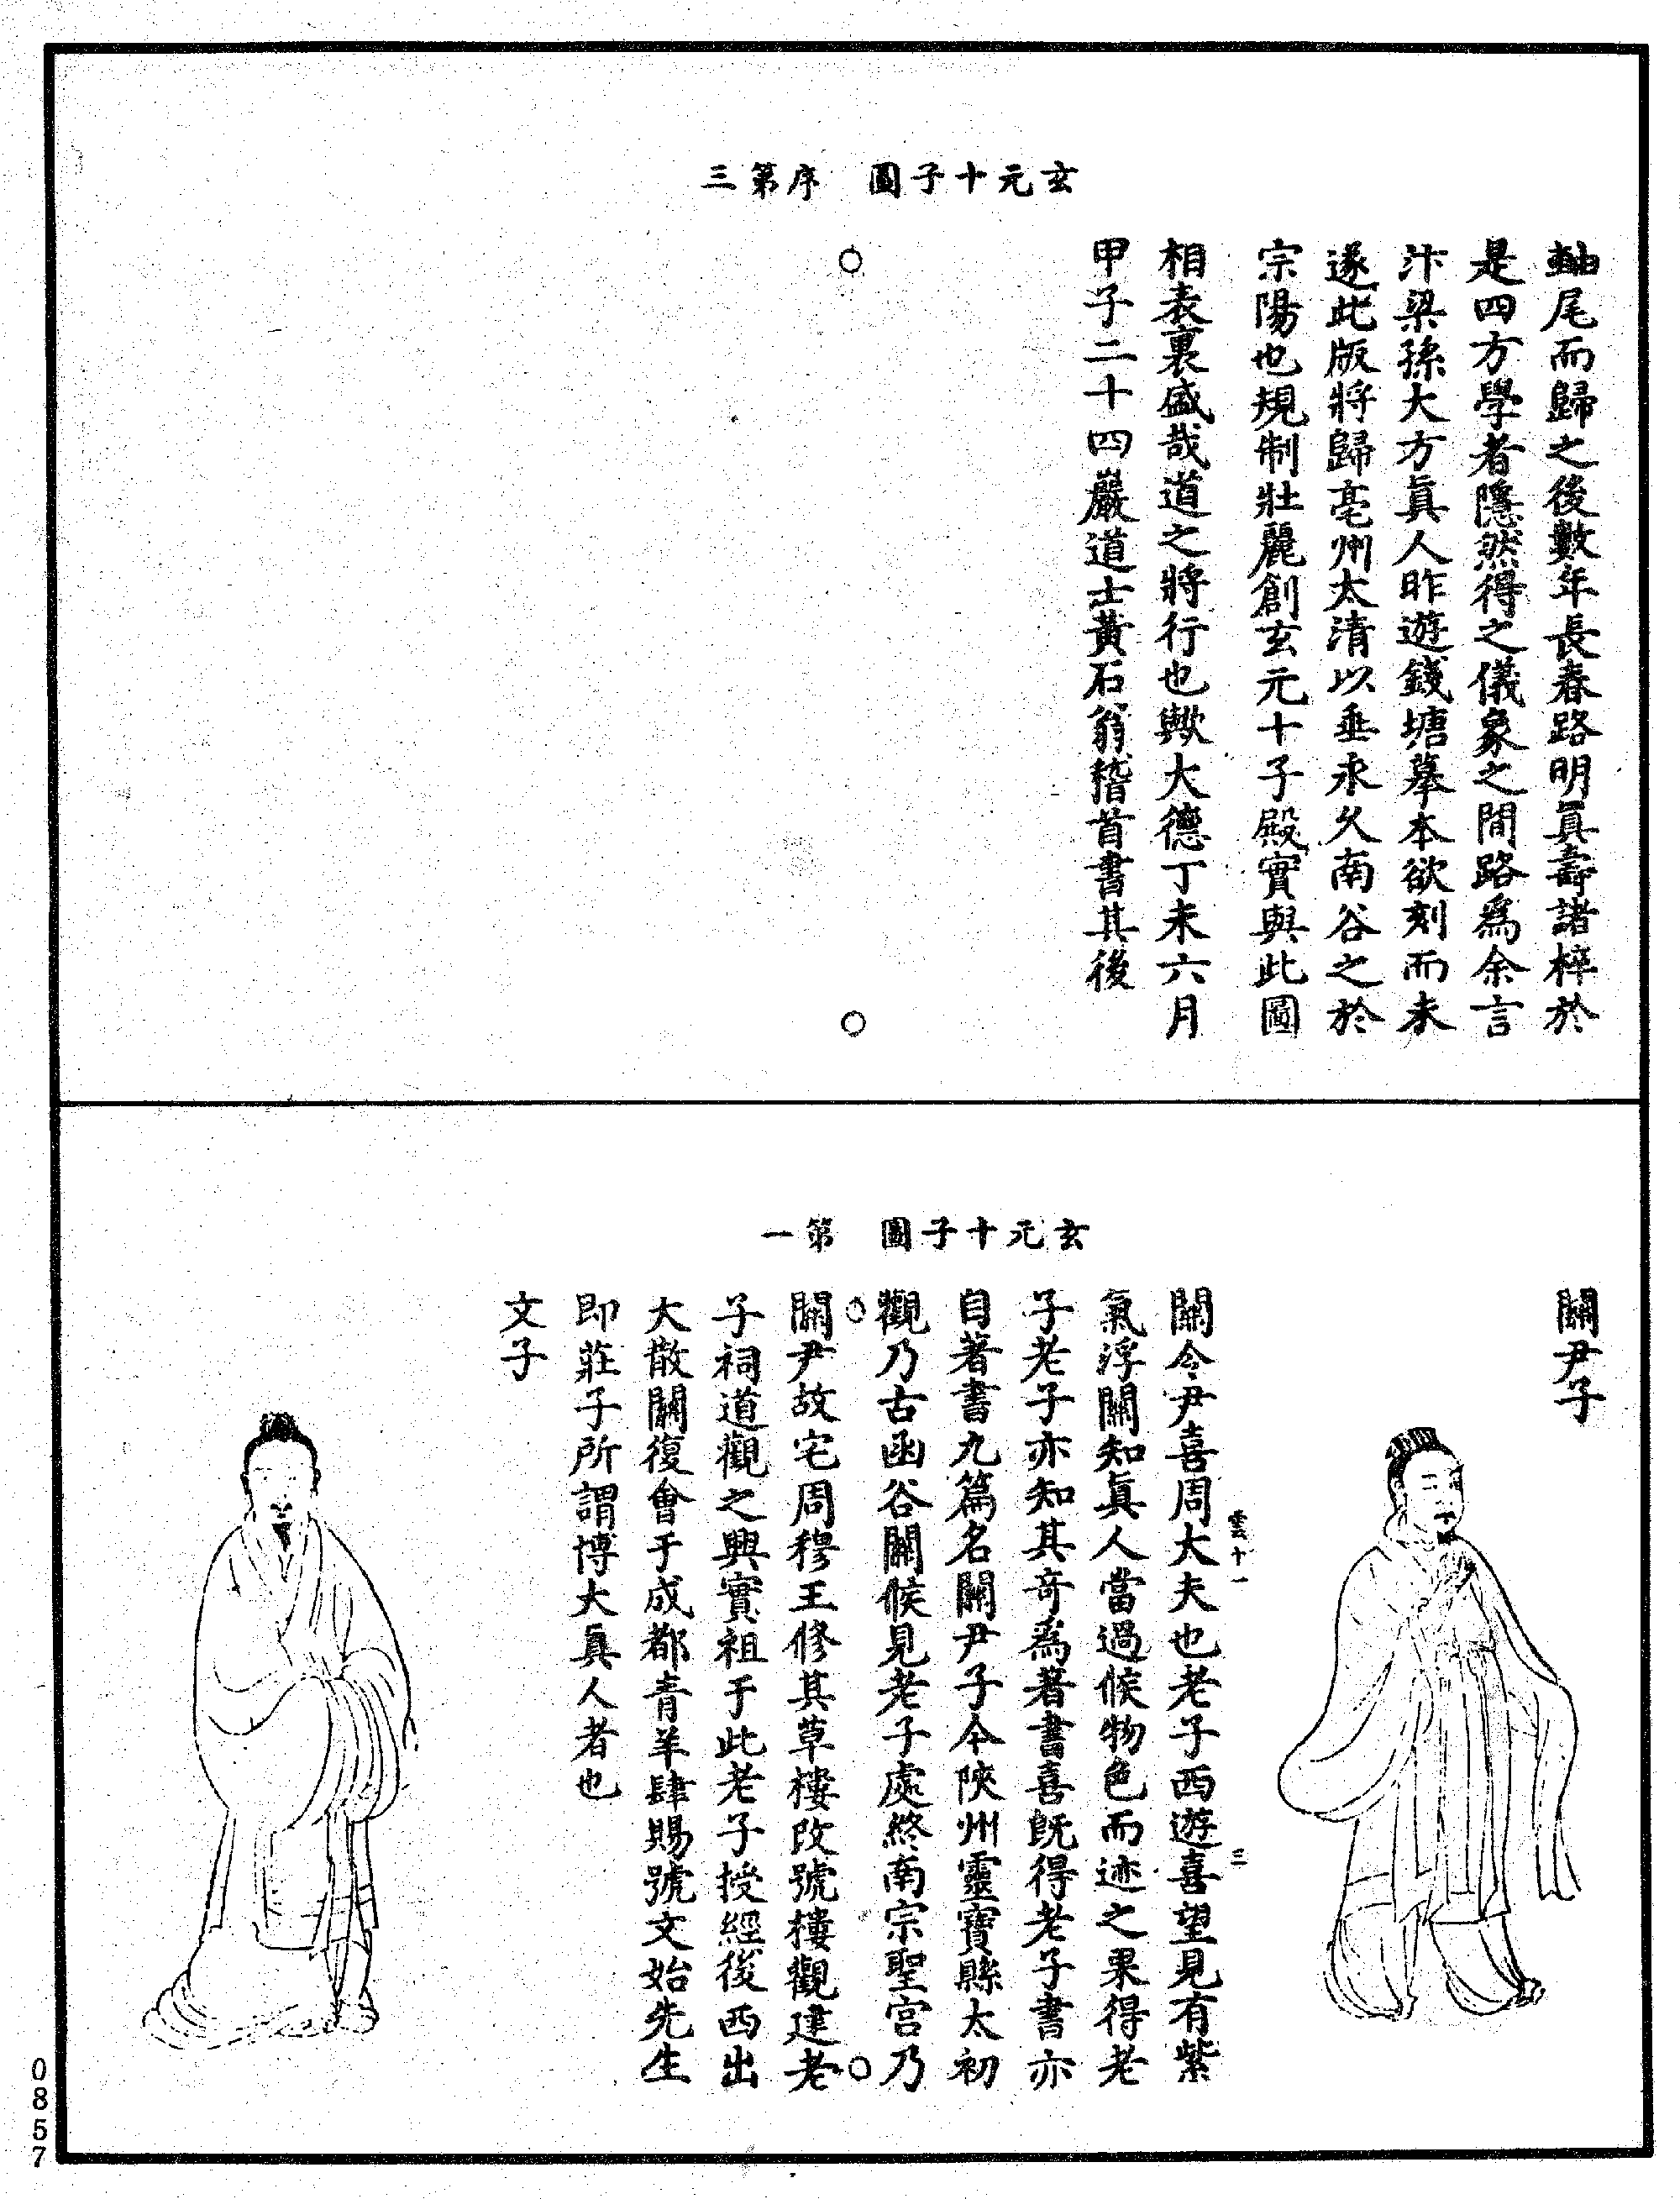 玄元十子圖　序第三
軸尾而歸之後數年長春路明眞壽諸梓於
是四方學者隱然得之儀象之間路爲余言
汴梁孫大方眞人昨遊錢塘摹本欲刻而未
遂此版將歸亳州太清以垂永久南谷之於
宗陽也規制壯麗創玄元十子殿實與此圖
相表裏盛哉道之將行也歟大德丁未六月
甲子二十四巖道士黃石翁稽首書其後
玄元十子圖　第一
關尹子
雲十一　三
關令尹喜周大夫也老子西遊喜望見有紫
氣浮關知眞人當過候物色而迹之果得老
子老子亦知其奇爲著書喜旣得老子書亦
自著書九篇名關尹子今陝州靈寶縣太初
觀乃古函谷關候見老子處終南宗聖宮乃
關尹故宅周穆王修其草樓改號樓觀建老
子祠道觀之興實祖于此老子授經後西出
大散關復會于成都青羊肆賜號文始先生
即莊子所謂博大眞人者也
文子
0857